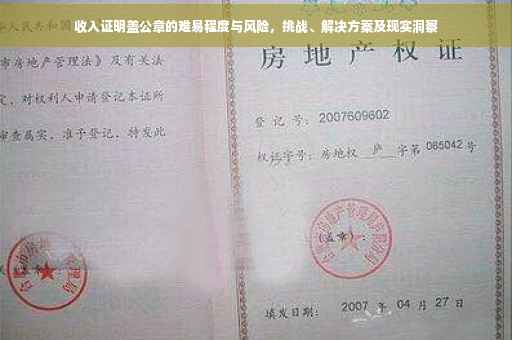 收入证明盖公章的难易程度与风险，挑战、解决方案及现实洞察
人民共和国
市房地产管理法》及有关法
定，对权利人申请登记本证所
审查属实，准予登记，特发此
房地产权证
登记号：2007609602
权证字号：房地权 庐 字第 065042 号
（盖章）：
填发日期： 2007 年 04 月 27 日